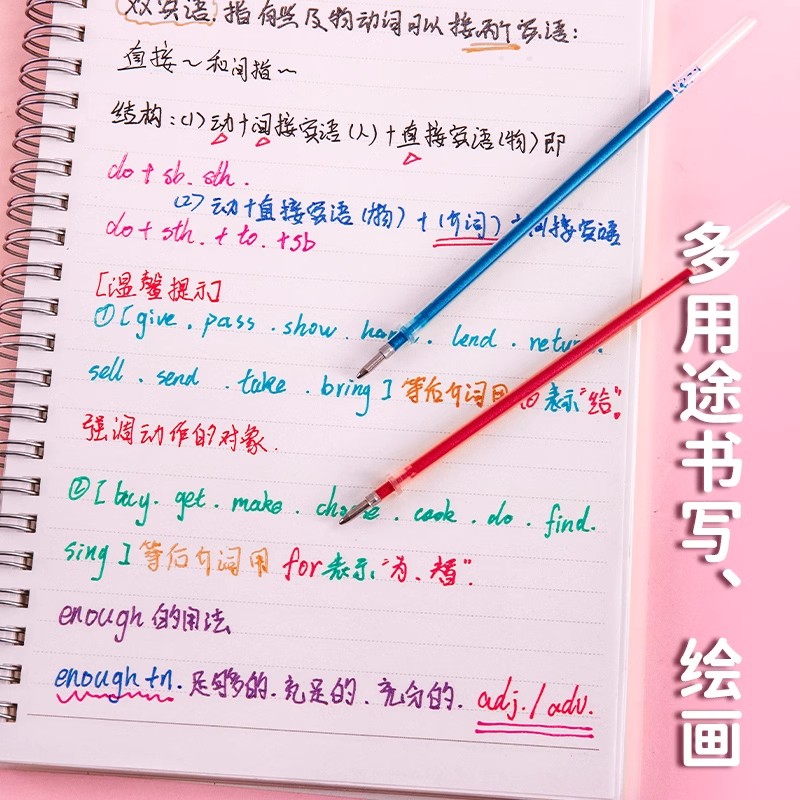 双宾语.指有些及物动词可以接两个宾语:
直接~和间指~
结构:(1)动+间接宾语(人)+直接宾语(物)即
do+sb.sth.
(2)动+直接宾语(物)+(介词)+间接宾语
do+sth.+to.+sb
[温馨提示]
①[give.pass.show.hand.lend.return.
sell.send.take.bring]等后介词用to表示"给".
强调动作的对象.
②[buy.get.make.choose.cook.do.find.
sing]等后介词用for表示"为、替".
enough的用法
enough+n.足够多的.充足的.充分的.adj./adv.
多用途书写、绘画